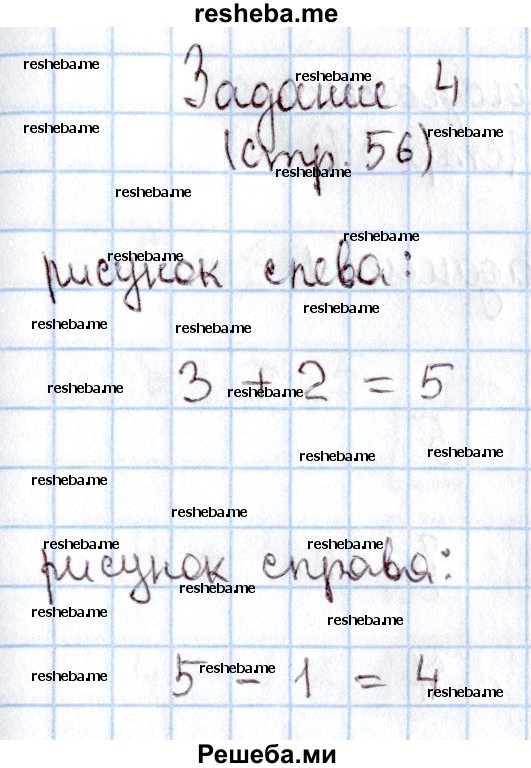 resheba.me
resheba.me
resheba.me
Задание 4
resheba.me
resheba.me
(стр. 56)
resheba.me
resheba.me
resheba.me
resheba.me
рисунок слева:
resheba.me
resheba.me
resheba.me
3 + 2 = 5
resheba.me
resheba.me
resheba.me
resheba.me
resheba.me
resheba.me
resheba.me
resheba.me
рисунок справа:
resheba.me
resheba.me
resheba.me
5 - 1 = 4
resheba.me
resheba.me
resheba.me
Решеба.ми